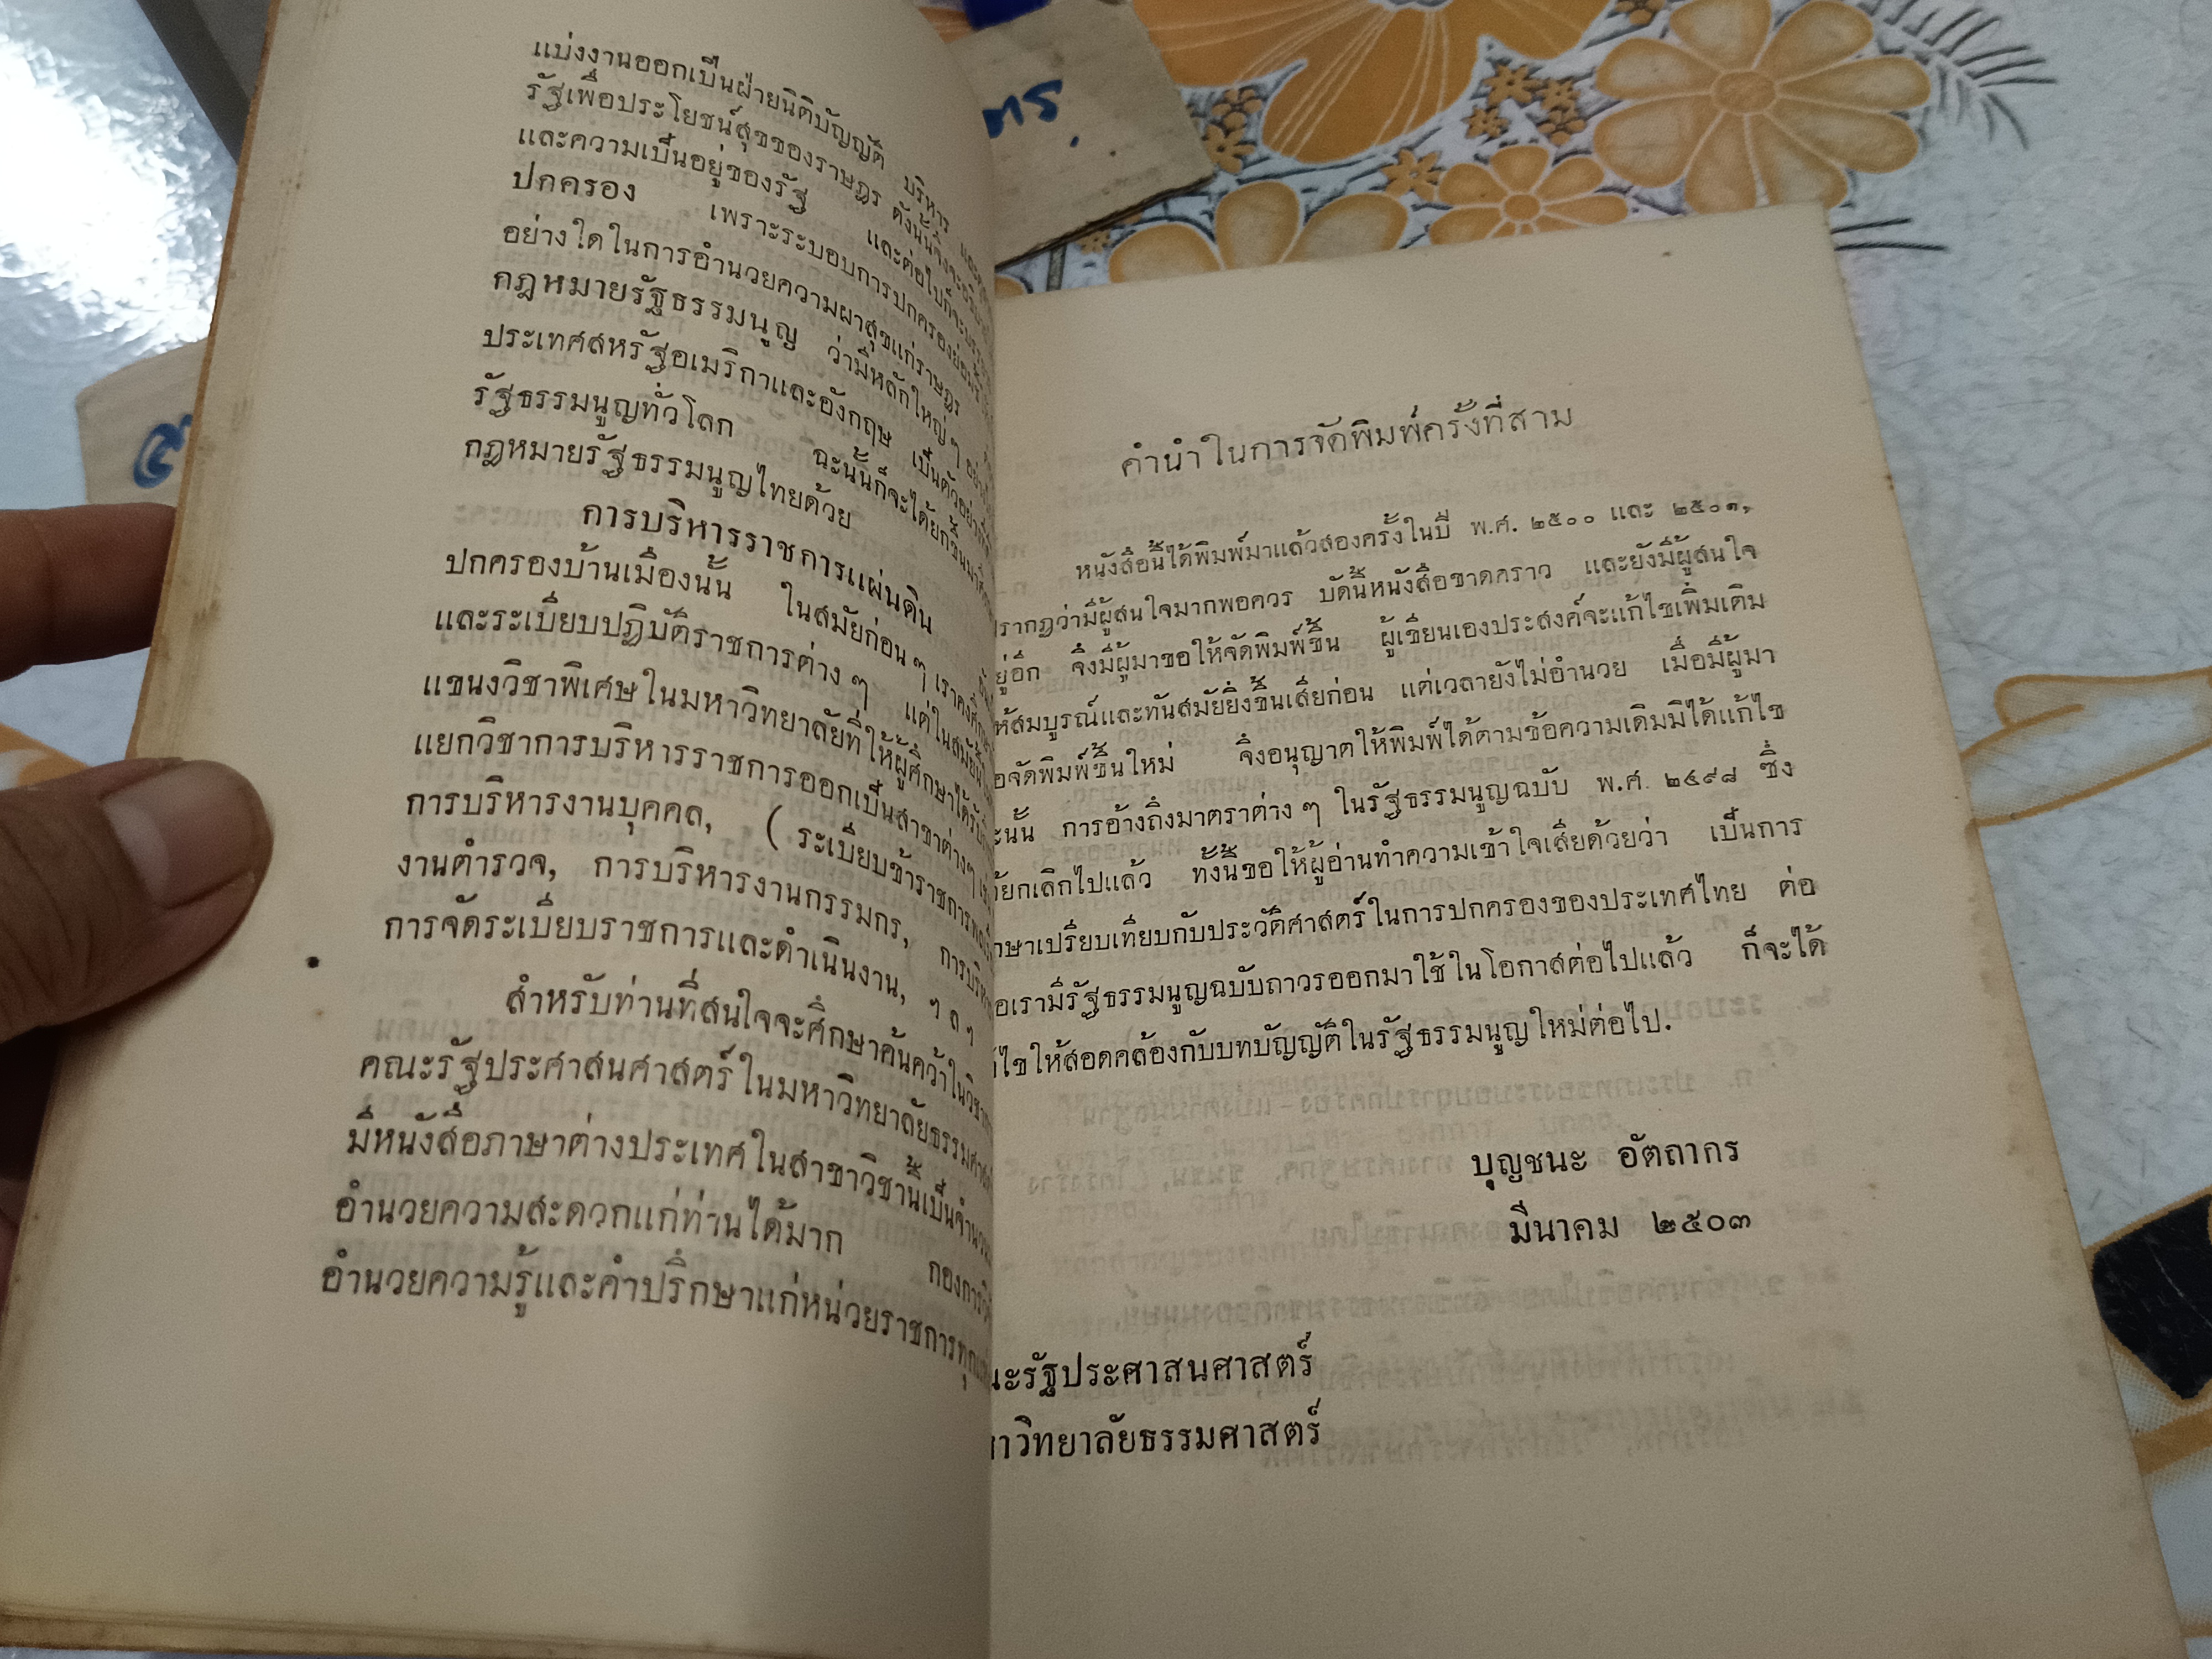 แบ่งงานออกเป็นฝ่ายนิติบัญญัติ บริหาร
รัฐเพื่อประโยชน์สุขของราษฎร ดังนั้นจึงจะ
และความเป็นอยู่ของรัฐ และต่อไปก็จะ
ปกครอง เพราะระบอบการปกครองย่อม
อย่างใดในการอำนวยความผาสุขแก่ราษฎร
กฎหมายรัฐธรรมนูญ ว่ามีหลักใหญ่ ๆ
ประเทศสหรัฐอเมริกาและอังกฤษ เป็นตัวอย่าง
รัฐธรรมนูญทั่วโลก ฉะนั้นก็จะได้ยกขึ้นมา
กฎหมายรัฐธรรมนูญไทยด้วย
การบริหารราชการแผ่นดิน
ปกครองบ้านเมืองนั้น ในสมัยก่อน ๆ เราคงศึกษา
และระเบียบปฏิบัติราชการต่าง ๆ แต่ในสมัยนี้
แขนงวิชาพิเศษในมหาวิทยาลัยที่ให้ผู้ศึกษาได้รับ
แยกวิชาการบริหารราชการออกเป็นสาขาต่างๆ
การบริหารงานบุคคล, (ระเบียบข้าราชการ
งานตำรวจ, การบริหารงานกรรมกร, การบริหาร
การจัดระเบียบราชการและดำเนินงาน, ฯ ล ฯ
สำหรับท่านที่สนใจจะศึกษาค้นคว้าในวิชา
คณะรัฐประศาสนศาสตร์ในมหาวิทยาลัยธรรมศาสตร์
มีหนังสือภาษาต่างประเทศในสาขาวิชานี้เป็นจำนวน
อำนวยความสะดวกแก่ท่านได้มาก กองการ
อำนวยความรู้และคำปรึกษาแก่หน่วยราชการทุก
ตร.
คำนำในการจัดพิมพ์ครั้งที่สาม
หนังสือนี้ได้พิมพ์มาแล้วสองครั้งในปี พ.ศ. ๒๕๐๐ และ ๒๕๐๑,
รากฏว่ามีผู้สนใจมากพอควร บัดนี้หนังสือขาดคราว และยังมีผู้สนใจ
ยู่อีก จึงมีผู้มาขอให้จัดพิมพ์ขึ้น ผู้เขียนเองประสงค์จะแก้ไขเพิ่มเติม
ห้สมบูรณ์และทันสมัยยิ่งขึ้นเสียก่อน แต่เวลายังไม่อำนวย เมื่อมีผู้มา
อจัดพิมพ์ขึ้นใหม่ จึงอนุญาตให้พิมพ์ได้ตามข้อความเดิมมิได้แก้ไข
ะนั้น การอ้างถึงมาตราต่าง ๆ ในรัฐธรรมนูญฉบับ พ.ศ. ๒๔๙๘ ซึ่ง
ด้ยกเลิกไปแล้ว ทั้งนี้ขอให้ผู้อ่านทำความเข้าใจเสียด้วยว่า เป็นการ
กษาเปรียบเทียบกับประวัติศาสตร์ในการปกครองของประเทศไทย ต่อ
อเรามีรัฐธรรมนูญฉบับถาวรออกมาใช้ในโอกาสต่อไปแล้ว ก็จะได้
ก้ไขให้สอดคล้องกับบทบัญญัติในรัฐธรรมนูญใหม่ต่อไป.
บุญชนะ อัตถากร
มีนาคม ๒๕๐๓
ณะรัฐประศาสนศาสตร์
หาวิทยาลัยธรรมศาสตร์